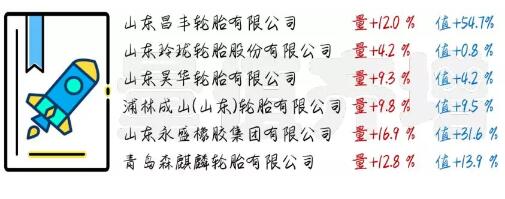 山东昌丰轮胎有限公司 量+12.0 % 值+54.7%
山东玲珑轮胎股份有限公司 量+4.2 % 值+0.8 %
山东昊华轮胎有限公司 量+9.3 % 值+4.2 %
浦林成山(山东)轮胎有限公司 量+9.8 % 值+9.5 %
山东永盛橡胶集团有限公司 量+16.9 % 值+31.6 %
青岛森麒麟轮胎有限公司 量+12.8 % 值+13.9 %